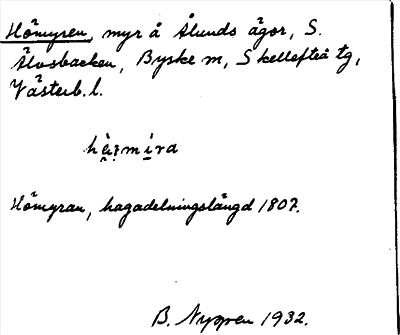 Hömyren, myr å Ålunds ägor, S.
Älvsbacken, Byske sn, Skellefteå tg,
Västerb. l.
Hömyran, hagadelningslängd 1807.
B. Nyppen 1932.